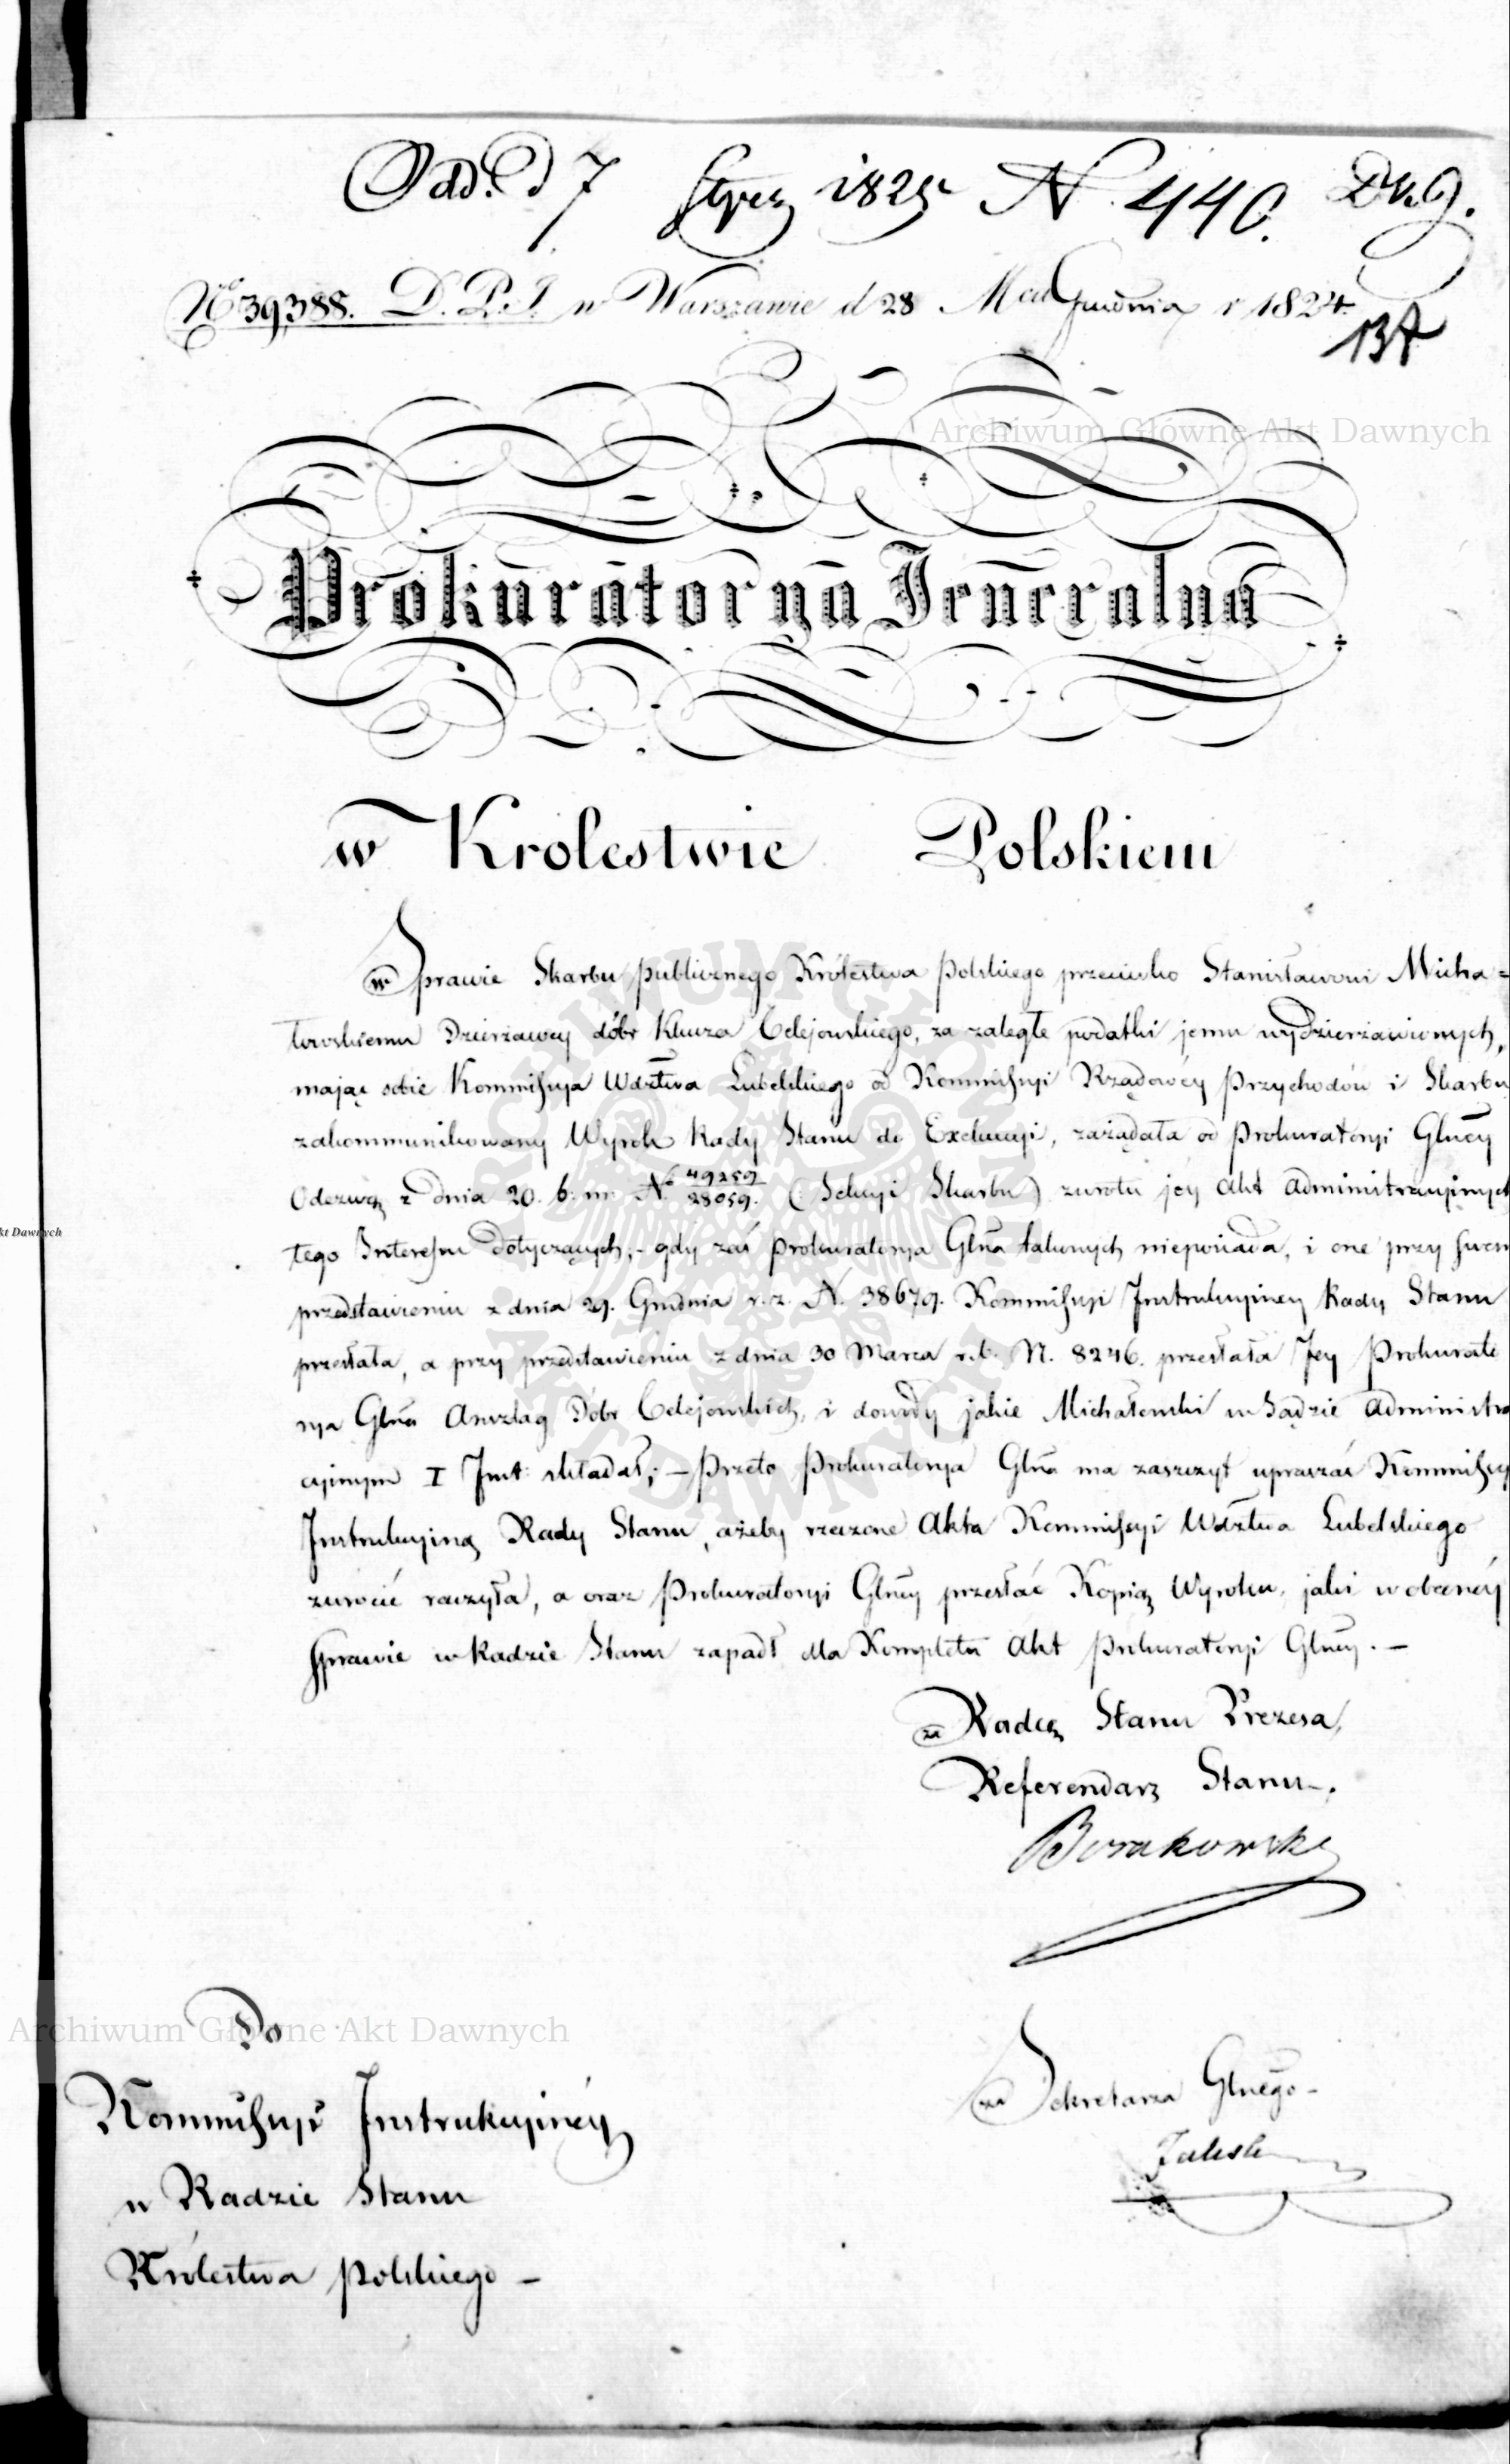 Odd. d 7 Stycz 1825 N. 440.
137
N 39388. D.P.J. w Warszawie d 28 Mca Grudnia r 1824.
Archiwum Główne Akt Dawnych
Prokuratorya Jeneralna
w Królestwie Polskiem
w Sprawie Skarbu publicznego Królestwa Polskiego przeciwko Stanisławowi Micha=
łowskiemu Dzierżawcy dóbr Klucza Celejowskiego, za zaległe podatki jemu wydzierżawionych,
mając sobie Kommissya Wdztwa Lubelskiego od Kommissyi Rządowéy Przychodów i Skarbu
zakommunikowany Wyrok Rady Stanu do Exekucyi, zażądała od Prokuratoryi Glnéy
Odezwą z dnia 20. b. m. N. 49259/28059. (Sekcyi Skarbu) zwrotu jéy Akt administracyjnych
tego Interessu dotyczących, - gdy zaś Prokuratorya Glna takowych nieposiada, i one przy swem
przedstawieniu z dnia 29. Grudnia r. z. N. 38679. Kommissyi Instrukcyjney Rady Stanu
przesłała, a przy przedstawieniu z dnia 30 Marca r. b. N. 8246. przesłała Jey Prokurato
rya Glna Anszlag Dóbr Celejowskich, i dowody jakie Michałowski w Sądzie administra
cyjnym I Inst: składał; — Przeto Prokuratorya Glna ma zaszczyt upraszać Kommissyą
Instrukcyjną Rady Stanu, ażeby rzeczone Akta Kommissyi Wdztwa Lubelskiego
zwrócić raczyła, a oraz Prokuratoryi Glnéy przesłać Kopią Wyroku, jaki w obecnéy
Sprawie w Radzie Stanu zapadł dla Kompletu Akt Prokuratoryi Glnéy. —
za Radcę Stanu Prezesa,
Referendarz Stanu.
Do
Archiwum Główne Akt Dawnych
Kommissyi Instrukcyinéy
w Radzie Stanu
Królestwa Polskiego —
za Sekretarza Glnego -